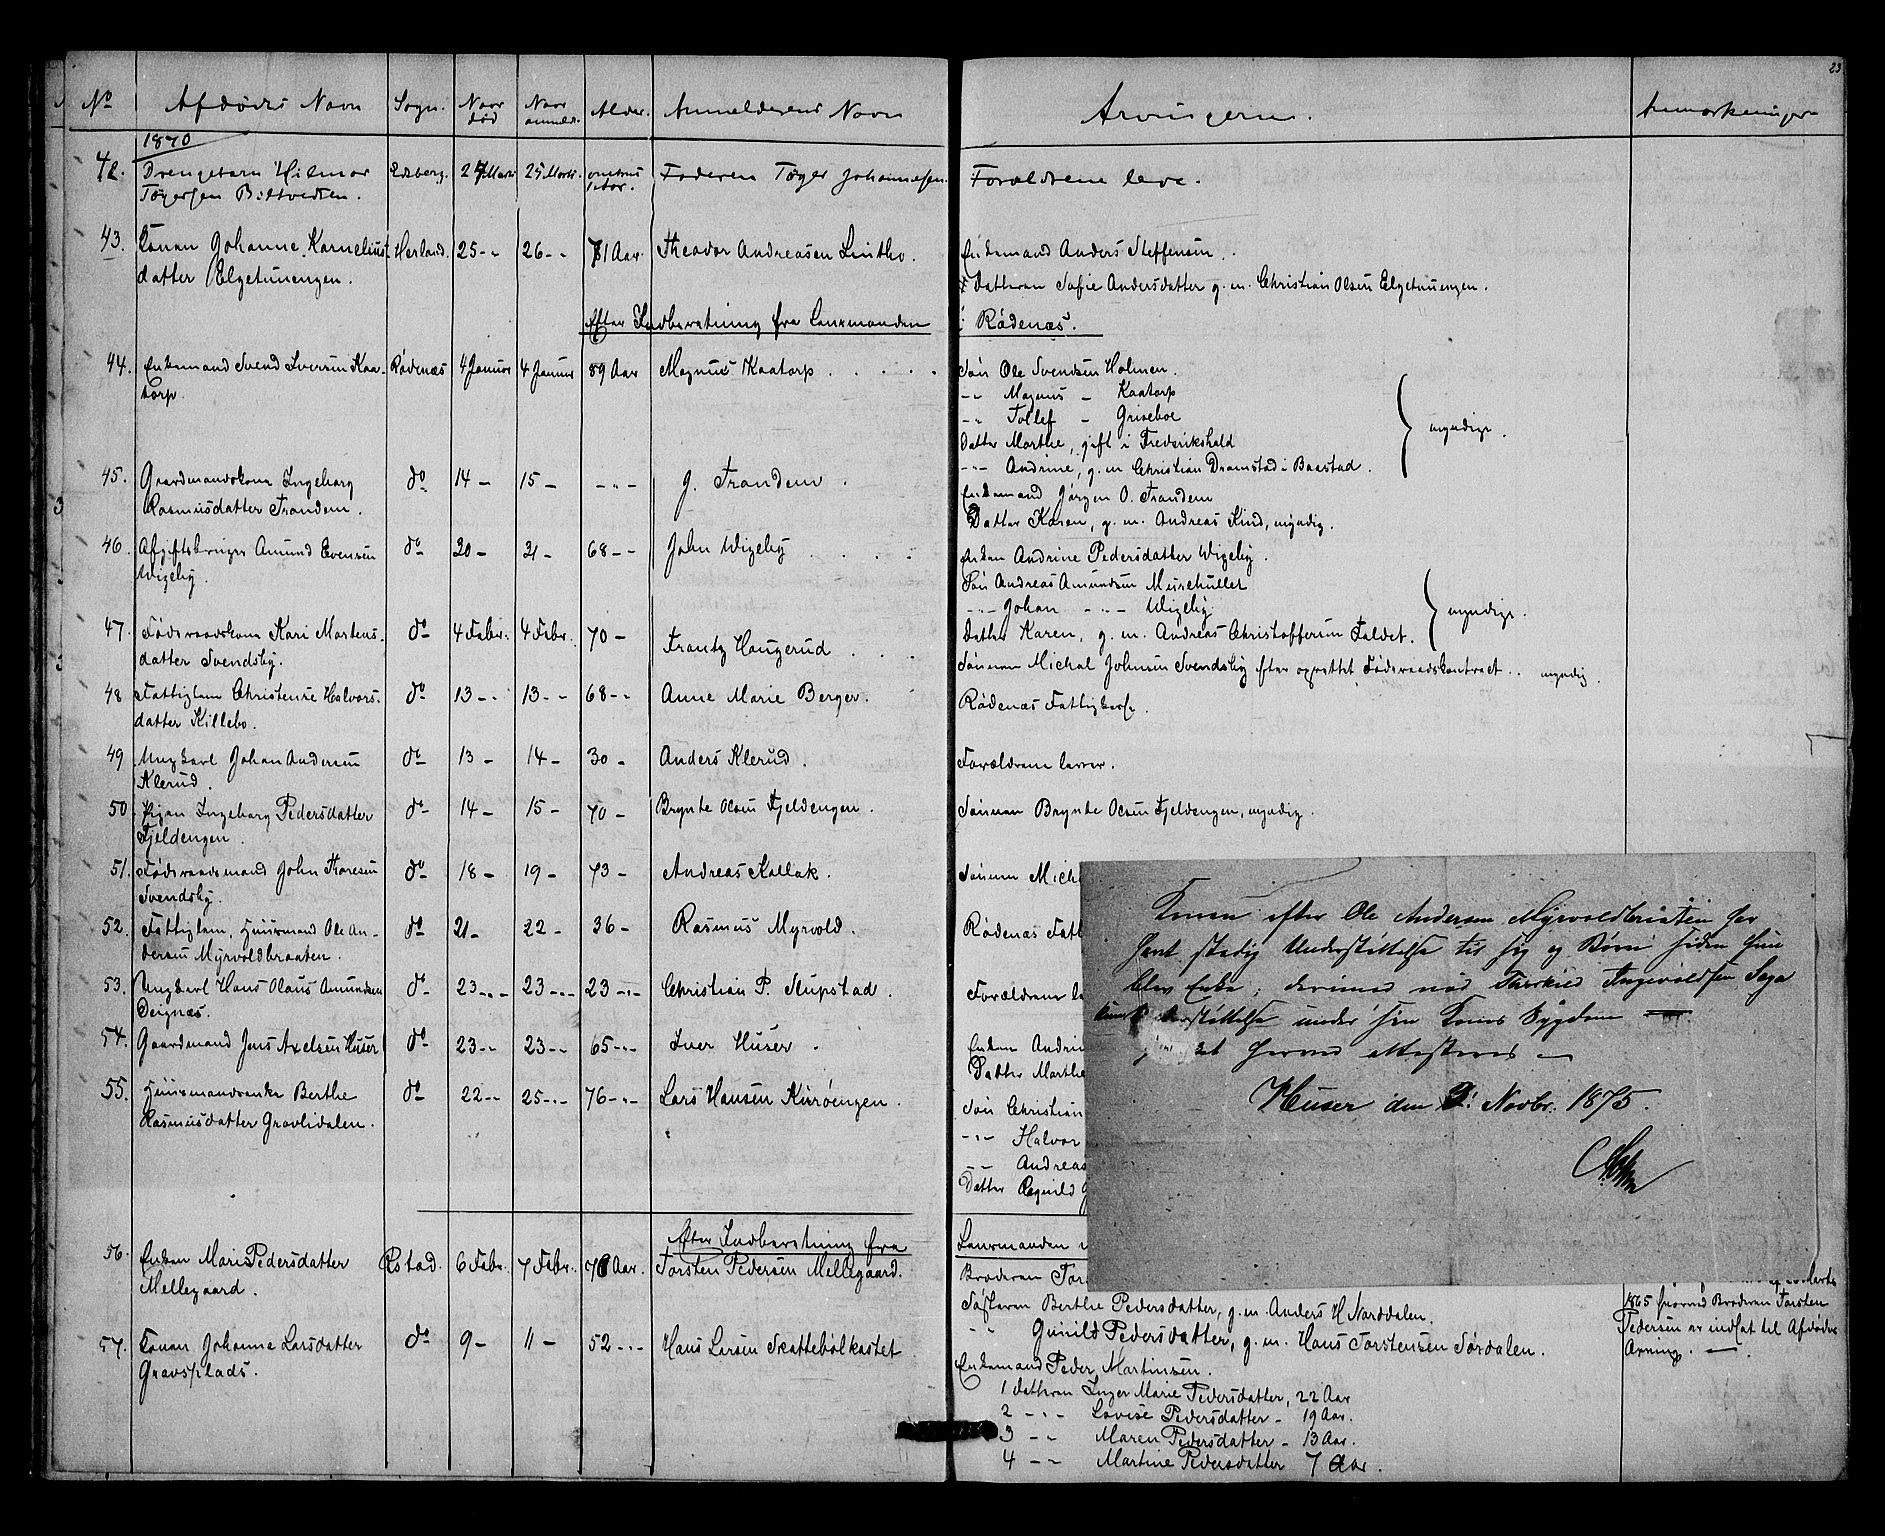 23
No Afdødes Navn Sogn. Naar død Naar anmeldt Alder. Anmelderens Navn Arvingerne. Anmærkninger
1870
42. Drengebarn Hilmar Edsberg. 24 Marts 25 Marts omtrent 1 Aar. Faderen Tøger Johannesen. Forældrene leve.
Tøgersen Bittvedten.
43. Konen Johanne Kornelius- Herland. 25 -"- 26 -"- 71 Aar. Theodor Andreasen Lintho. Enkemand Anders Steffensen.
datter Elgetunengen. Datteren Sofie Andersdatter g. m. Christian Olsen Elgetunengen.
Efter Indberetning fra Lensmanden i Rødenæs.
44. Enkemand Svend Iversen Kaa- Rødenæs 4 Januar 4 Januar 89 Aar Magnus Kaatorp. Søn Ole Svendsen Holmen.
torp. -"- Magnus - Kaatorp
-"- Tollef - Griseboe
Datter Marthe, gift i Frederikshald myndige.
-"- Andrine, g. m. Christian Dramstad i Baastad.
45. Gaardmandskone Ingeborg do 14 - 15 - -"- J. Trandem. Enkemand Jørgen O. Trandem
Rasmusdatter Trandem. Datter Karen, g. m. Andreas Kind, myndig.
46. Afgiftsbruger Amund Evensen do 20 - 21 - 68 -"- John Wigeby Enken Andrine Pedersdatter Wigeby.
Wigeby. Søn Andreas Amundsen Musehullet
-"- Johan -"- Wigeby. myndige.
47. Føderaadskone Kari Mortens- do 4 Febr. 4 Febr. 70 - Frantz Haugerud. Datter Karen, g. m. Andreas Christoffersen Faldet.
datter Svendsby. Sønnen Michal Johnsen Svendsby efter oprettet Føderaadskontract. myndig.
48 Fattiglem Christense Halvors- do 13 -"- 13 -"- 68 -"- Anne Marie Berger. Rødenæs Fattigkasse.
datter Killebo.
49 Ungkarl Johan Andersen do 13 - 14 - 30 - Anders Klerud. Forældrene lever.
Klerud.
50 Pigen Ingeborg Pedersdatter do 14 - 15 - 70 - Brynte Olsen Fjeldengen. Sønnen Brynte Olsen Fjeldengen, myndig.
Fjeldengen.
51. Føderaadsmand John Haresen do 18 - 19 - 73 - Andreas Kollak. Sønnen Mich
Svendsby.
52. Fattiglem, Huusmand Ole An- do 21 - 22 - 36 - Rasmus Myrvold. Rødenæs Fatt
dersen Myrvoldbraaten.
53. Ungkarl Hans Olaus Amundsen do 23 -"- 23 -"- 23 -"- Christian P. Slupstad. Forældrene l
Deignæs.
54. Gaardmand Jens Axelsen Huser do 23 -"- 23 -"- 65 -"- Iver Huser. Enken Andrin
Datter Marthe
55. Huusmandsenke Berthe do 22 -"- 25 -"- 76 -"- Lars Hansen Kirrøengen. Søn Christian
Rasmusdatter Gravlidalen. -"- Halvor
-"- Andreas
Datter Regnild
Efter Indberetning fra Lensmanden
56. Enken Mari Pedersdatter Rstad. 6 Febr. 7 Febr. 78 Aar. Torsten Pedersen Mellegaard. Broderen Tor
Mellegaard. Søsteren Berthe Pedersdatter, g. m. Anders H Narddalen.
-"- Gunild Pedersdatter, g. m. Hans Torstensen Sørdalen.
Marts
1865 hvorved Broderen Torsten
Pedersen er indsat til Afdødes
Arving.
57. Konen Johanne Larsdatter do 9 - 11 - 52 -"- Hans Larsen Skattebølkastet. Enkemand Peder Martinsen.
Gravsplads. 1 Datteren Inger Marie Pedersdatter, 22 Aar
2 -"- Lovise Pedersdatter - 19 Aar.
3 -"- Maren Pedersdatter - 13 Aar.
4 -"- Martine Pedersdatter 7 Aar.
Konen efter Ole Andersen Myrvoldbraaten har
havt stadig Understøttelse til sig og Børn siden hun
blev Enke; derimod nød Thorkild Ingevaldsen Saga
kun Understøttelse under sin Kones Sygdom
hvilket herved attesteres
Huser den 9. Novbr. 1875.